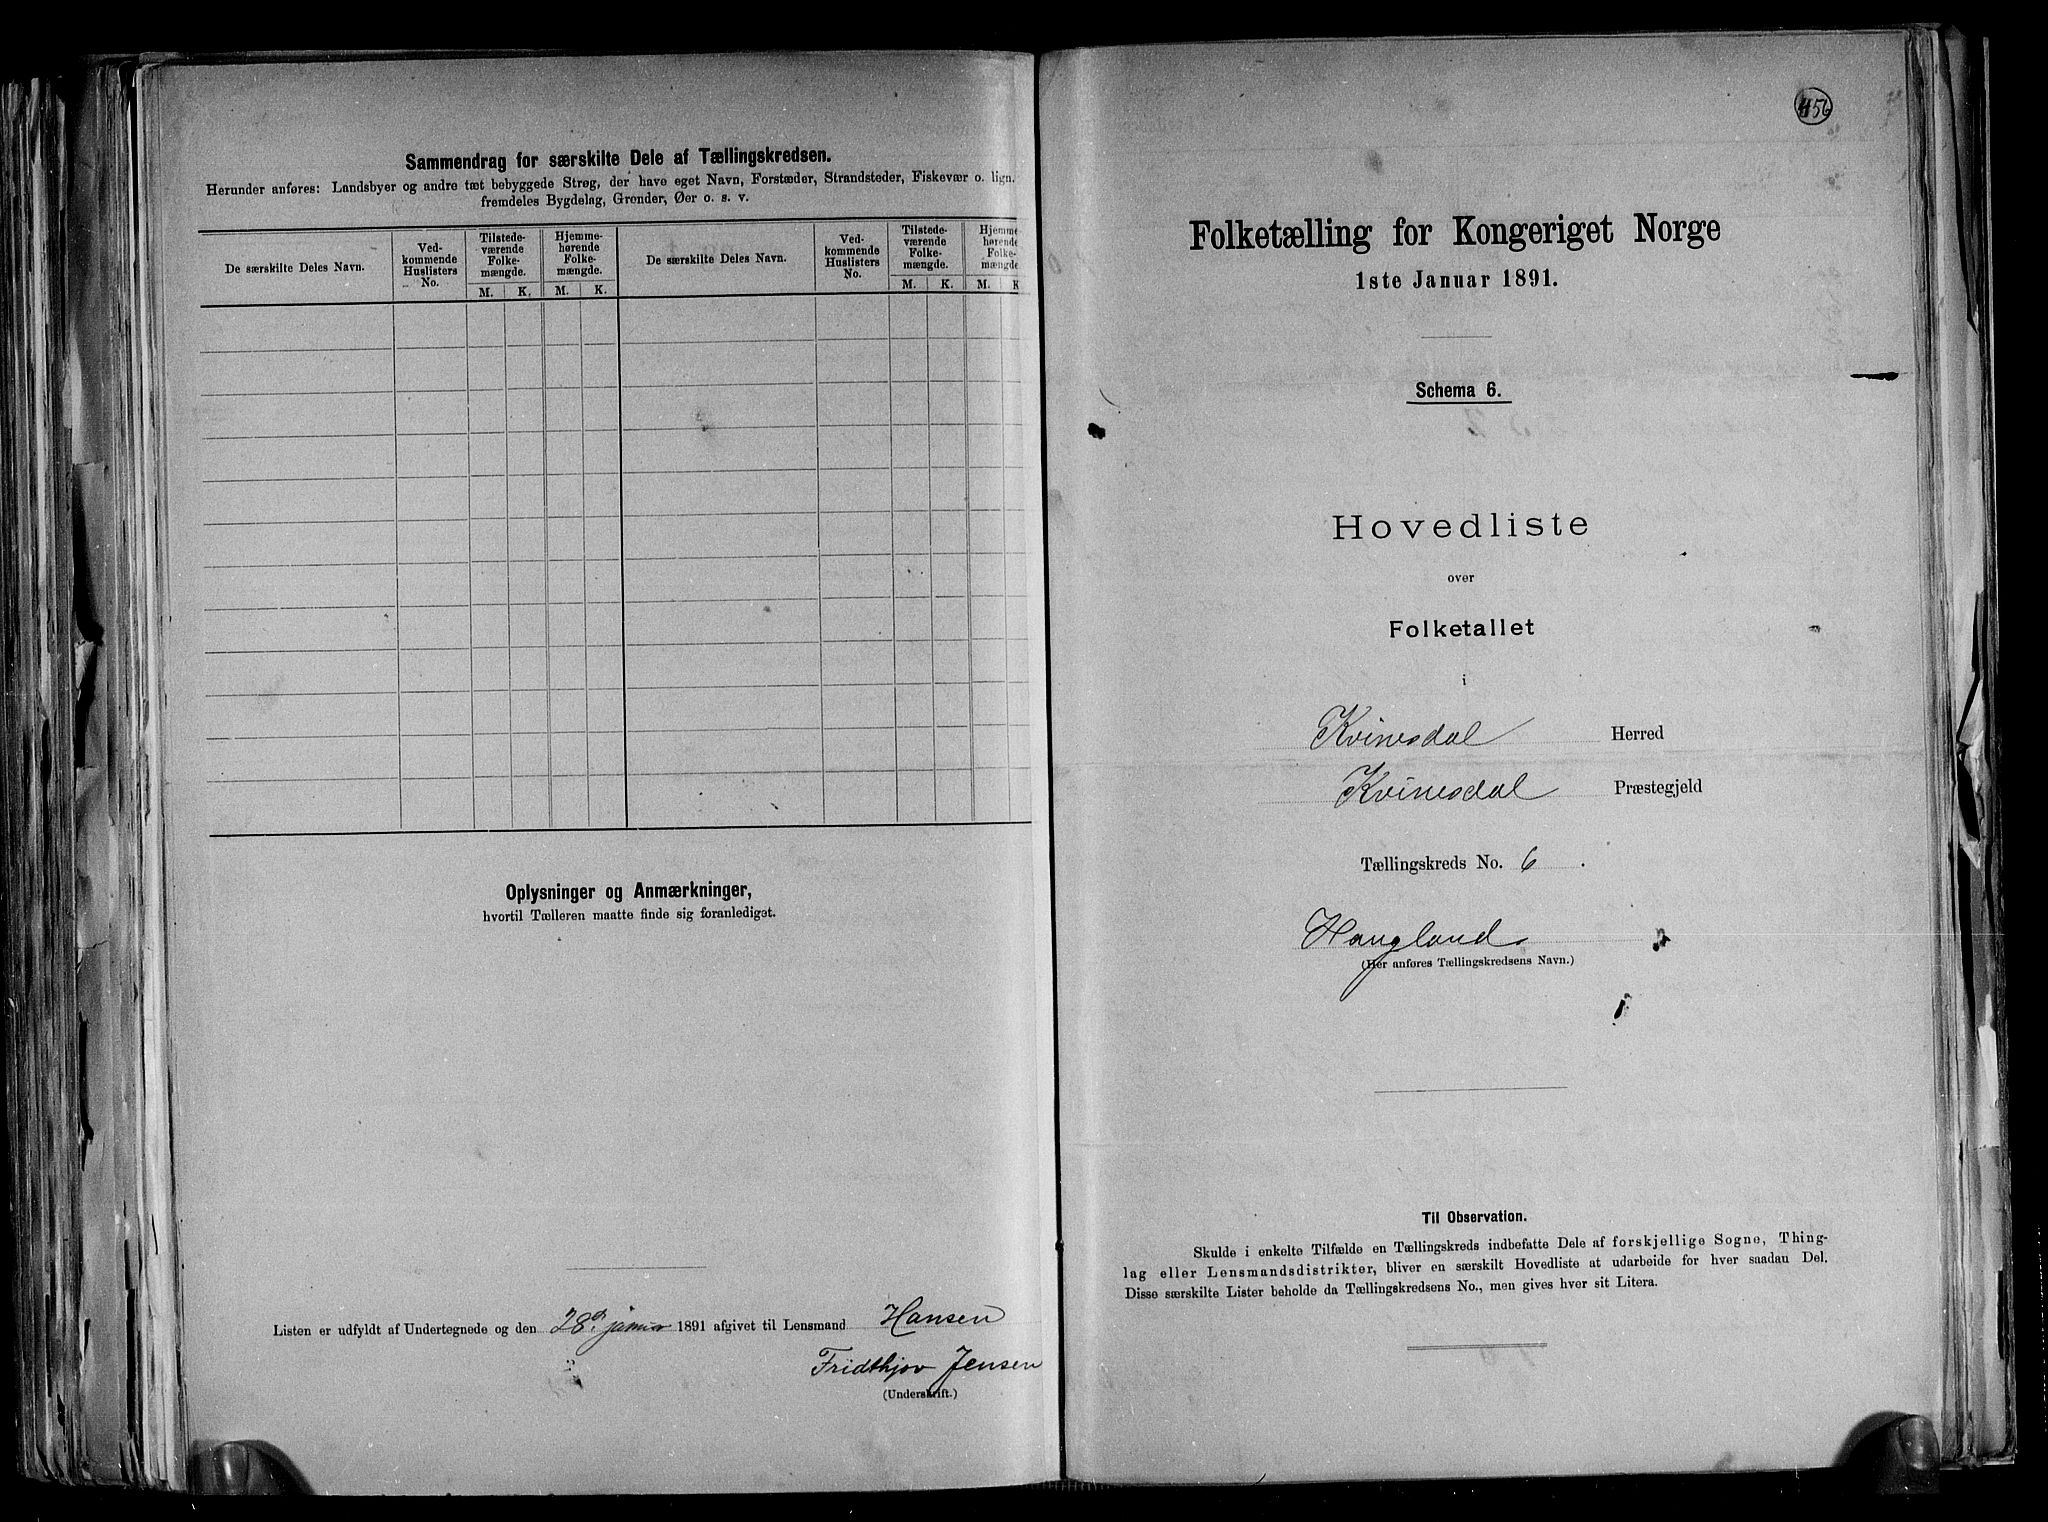 Sammendrag for særskilte Dele af Tællingskredsen.
Herunder anføres: Landsbyer og andre tæt bebyggede Strøg, der have eget Navn, Forstæder, Strandsteder, Fiskevær o. lign.
fremdeles Bygdelag, Grender, Øer o. s. v.
De særskilte Deles Navn.
Ved-
kommende
Huslisters
No.
Tilstede-
værende
Folke-
mængde.
Hjemme-
hørende
Folke-
mængde.
De særskilte Deles Navn.
Ved-
kommende
Huslisters
No.
Tilstede-
værende
Folke-
mængde.
Hjemme-
hørende
Folke-
mængde
M. K. M. K. M. K. M. K
Oplysninger og Anmærkninger,
hvortil Tælleren maatte finde sig foranlediget.
Listen er udfyldt af Undertegnede og den 28de januar 1891 afgivet til Lensmand Hansen
Fridthjov Jensen
(Underskrift.)
456
Folketælling for Kongeriget Norge
1ste Januar 1891.
Schema 6.
Hovedliste
over
Folketallet
i
Kvinesdal Herred
Kvinesdal Præstegjeld
Tællingskreds No. 6.
Haugland
(Her anføres Tællingskredsens Navn.)
Til Observation.
Skulde i enkelte Tilfælde en Tællingskreds indbefatte Dele af forskjellige Sogne, Thing-
lag eller Lensmandsdistrikter, bliver en særskilt Hovedliste at udarbeide for hver saadan Del.
Disse særskilte Lister beholde da Tællingskredsens No., men gives hver sit Litera.